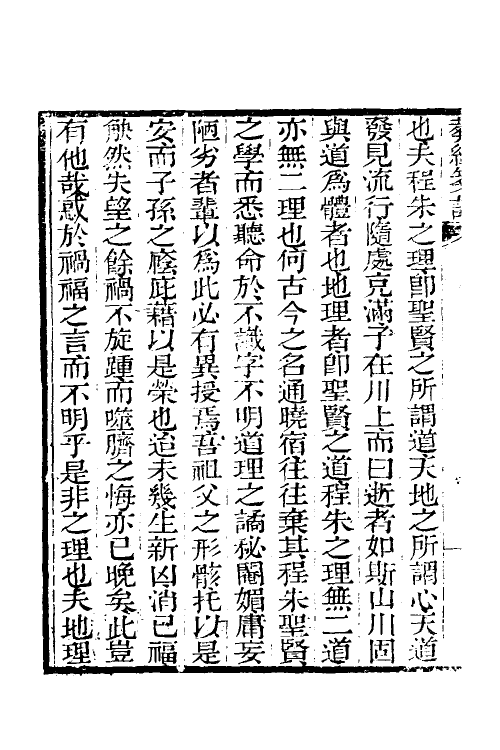 也夫程朱之理卽聖賢之所謂道天地之所謂心天道
發見流行隨處充滿子在川上而曰逝者如斯山川固
與道爲體者也地理者卽聖賢之道程朱之理無二道
亦無二理也何古今之名通曉宿往往棄其程朱聖賢
之學而悉聽命於不識字不明道理之譎秘闍媚庸妄
陋劣者輩以爲此必有異授焉吾祖父之形骸托以是
安而子孫之廕庇藉以是榮也迨未幾生新凶消已福
觖然失望之餘禍不旋踵而噬臍之悔亦已晚矣此豈
有他哉惑於禍福之言而不明乎是非之理也夫地理